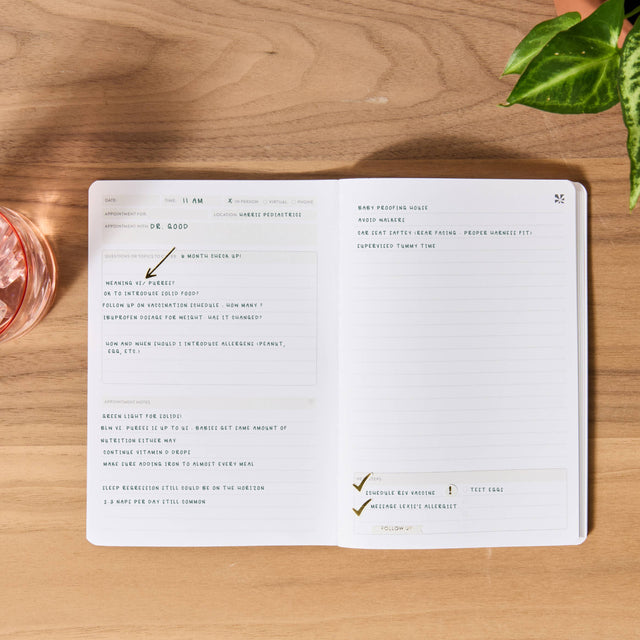 DATE: TIME: 11 AM X IN PERSON VIRTUAL PHONE
APPOINTMENT FOR: LOCATION: HARRIS PEDIATRICS
APPOINTMENT WITH: DR. GOOD
QUESTIONS OR TOPICS TO 6 MONTH CHECK UP!
WEANING VS/ PUREES?
OK TO INTRODUCE SOLID FOOD?
FOLLOW UP ON VACCINATION SCHEDULE - HOW MANY?
IBUPROFEN DOSAGE FOR WEIGHT - HAS IT CHANGED?
HOW AND WHEN SHOULD I INTRODUCE ALLERGENS (PEANUT,
EGG, ETC.)
APPOINTMENT NOTES
GREEN LIGHT FOR SOLIDS!
BLW VS. PUREES IS UP TO US - BABIES GET SAME AMOUNT OF
NUTRITION EITHER WAY
CONTINUE VITAMIN D DROPS
MAKE SURE ADDING IRON TO ALMOST EVERY MEAL
SLEEP REGRESSION STILL COULD BE ON THE HORIZON
2-3 NAPS PER DAY STILL COMMON
BABY PROOFING HOUSE
AVOID WALKERS
CAR SEAT SAFTEY (REAR FACING - PROPER HARNESS FIT)
SUPERVISED TUMMY TIME
SCHEDULE RSV VACCINE ! TEST EGGS
MESSAGE LEXIE'S ALLERGIST
FOLLOW UP